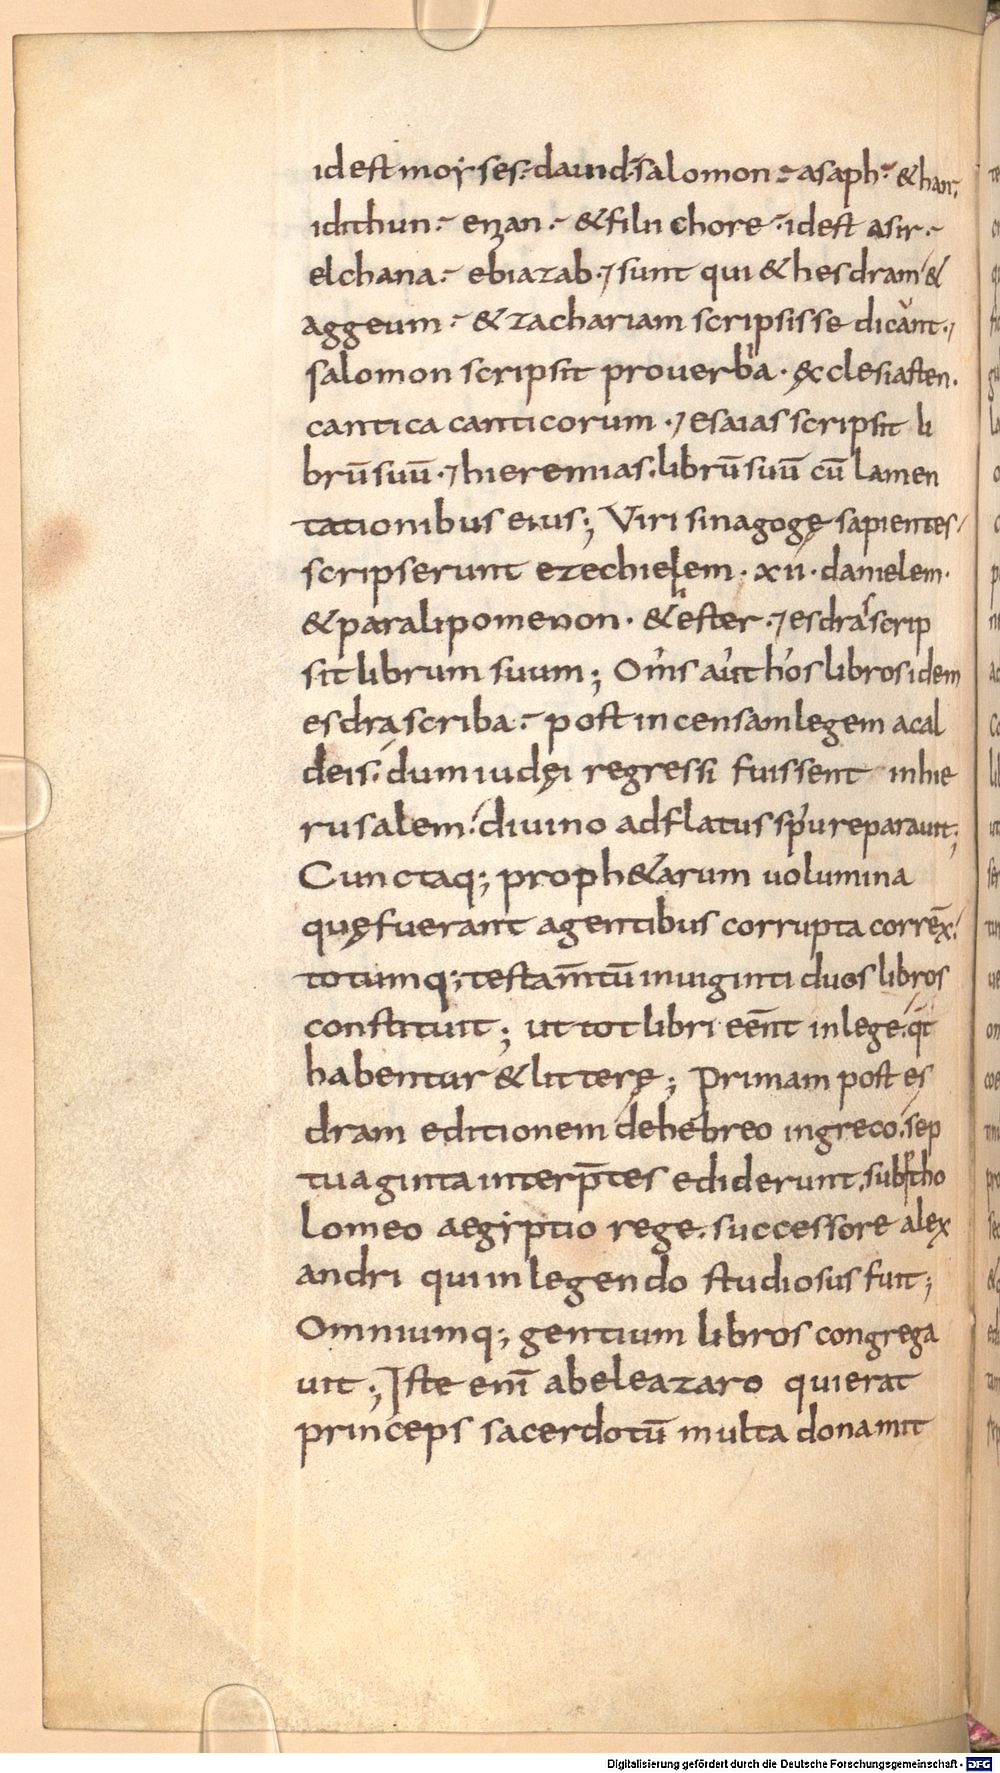 id est moyses. dauid. salomon. asaph. & han.
idithun. ezan. & filii chore. id est asir.
elchana. ebiazab. sunt qui & hesdram &
aggeum. & zachariam scripsisse dicant.
salomon scripsit prouerbia. ęcclesiasten.
cantica canticorum. esaias scripsit li
brū suū. hieremias. librū suū cū lamen
tationibus eius; Viri sinagogę sapientes
scripserunt ezechielem. xii. danielem.
& paralipomenon. & ester. esdras scrip
sit librum suum; Om̄s aut hos libros idem
esdrą scriba. post incensam legem a cal
deis. dum iudęi regressi fuissent in hie
rusalem. diuino adflatus spu reparauit;
Cunctaq; proph&arum uolumina
quę fuerant a gentibus corrupta corrēx.
totumq; testam̄tū in uiginti duos libros
constituit; ut tot libri eēnt in lege. qt
habentur & litterę; Primam post es
dram editionem de hebreo in greco. sep
tuaginta interp̄tes ediderunt. sub ptho
lomeo aegyptio rege. successore alex
andri qui in legendo studiosus fuit;
Omniumq; gentium libros congrega
uit; Iste eni ab eleazaro qui erat
princeps sacerdotū multa dona mit
Digitalisierung gefördert durch die Deutsche Forschungsgemeinschaft - DFG